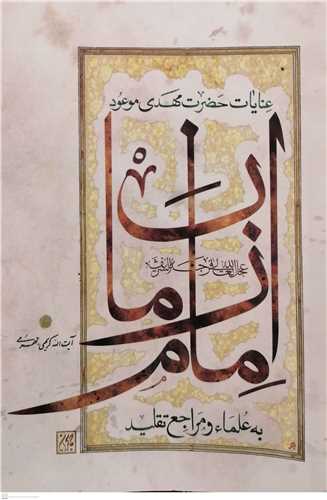 عنایات حضرت مهدی موعود
امام زمان
عجل الله تعالی فرجه الشریف
به علماء و مراجع تقلید
آیت الله کریمی جهرمی